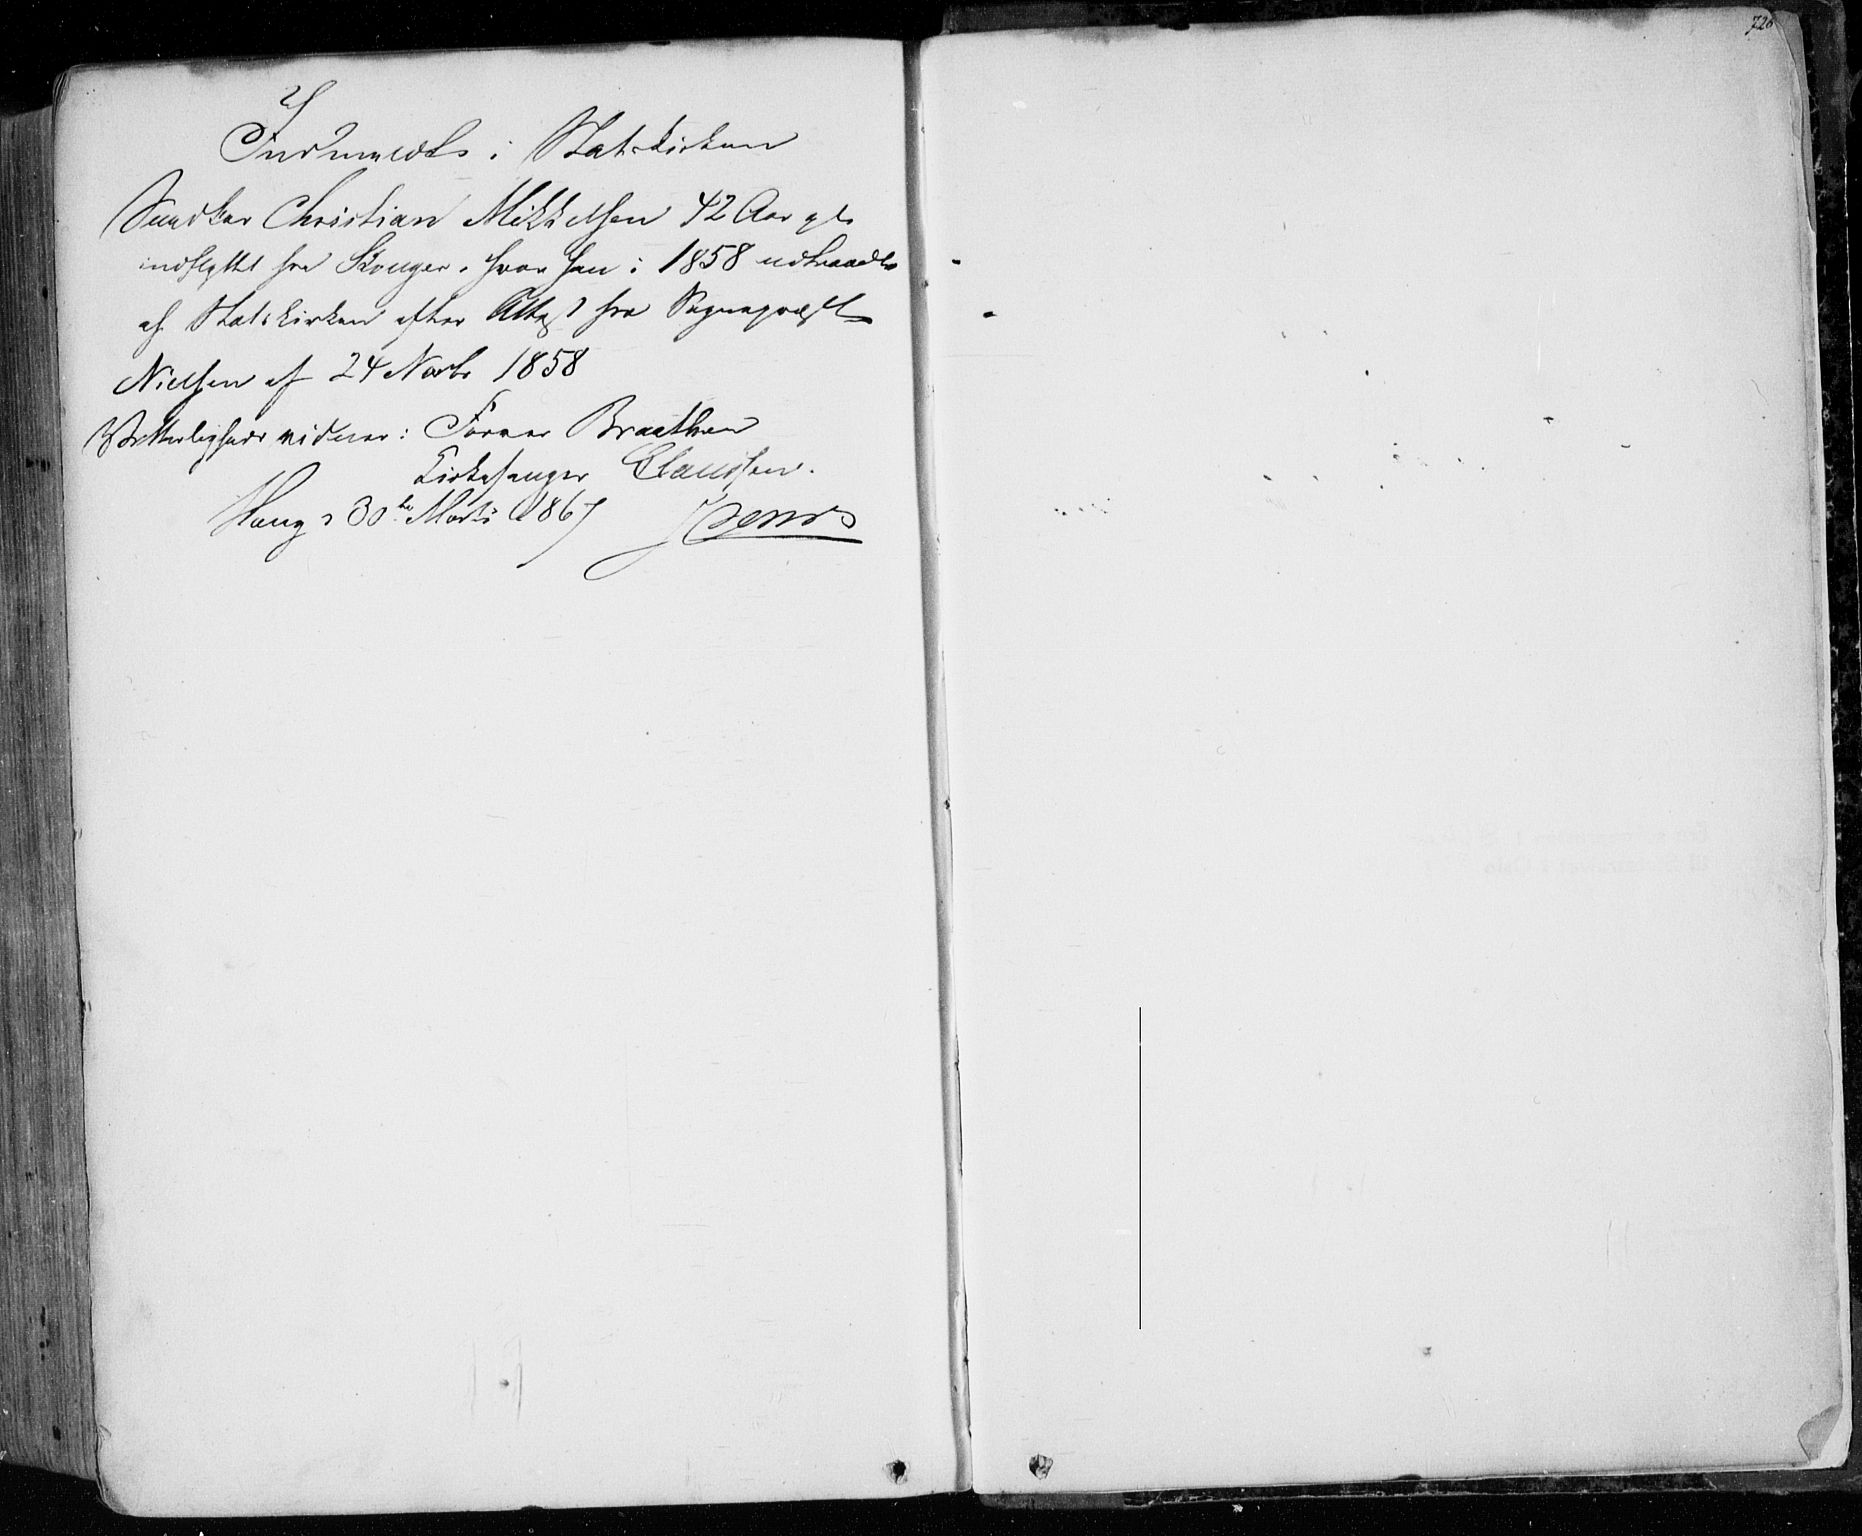 726
Indmeldt i Statskirken
Snedker Christian Mikkelsen 42 Aar gl.
indflyttet fra Skouger, hvor han i 1858 udtraadte
af Statskirken efter Attest fra Sognepræst
Nielsen af 24 Novbr 1858
Vitterligheds vidner: Farver Braathen
Kirkesanger Claussen.
Haug d 30te Marts 1867